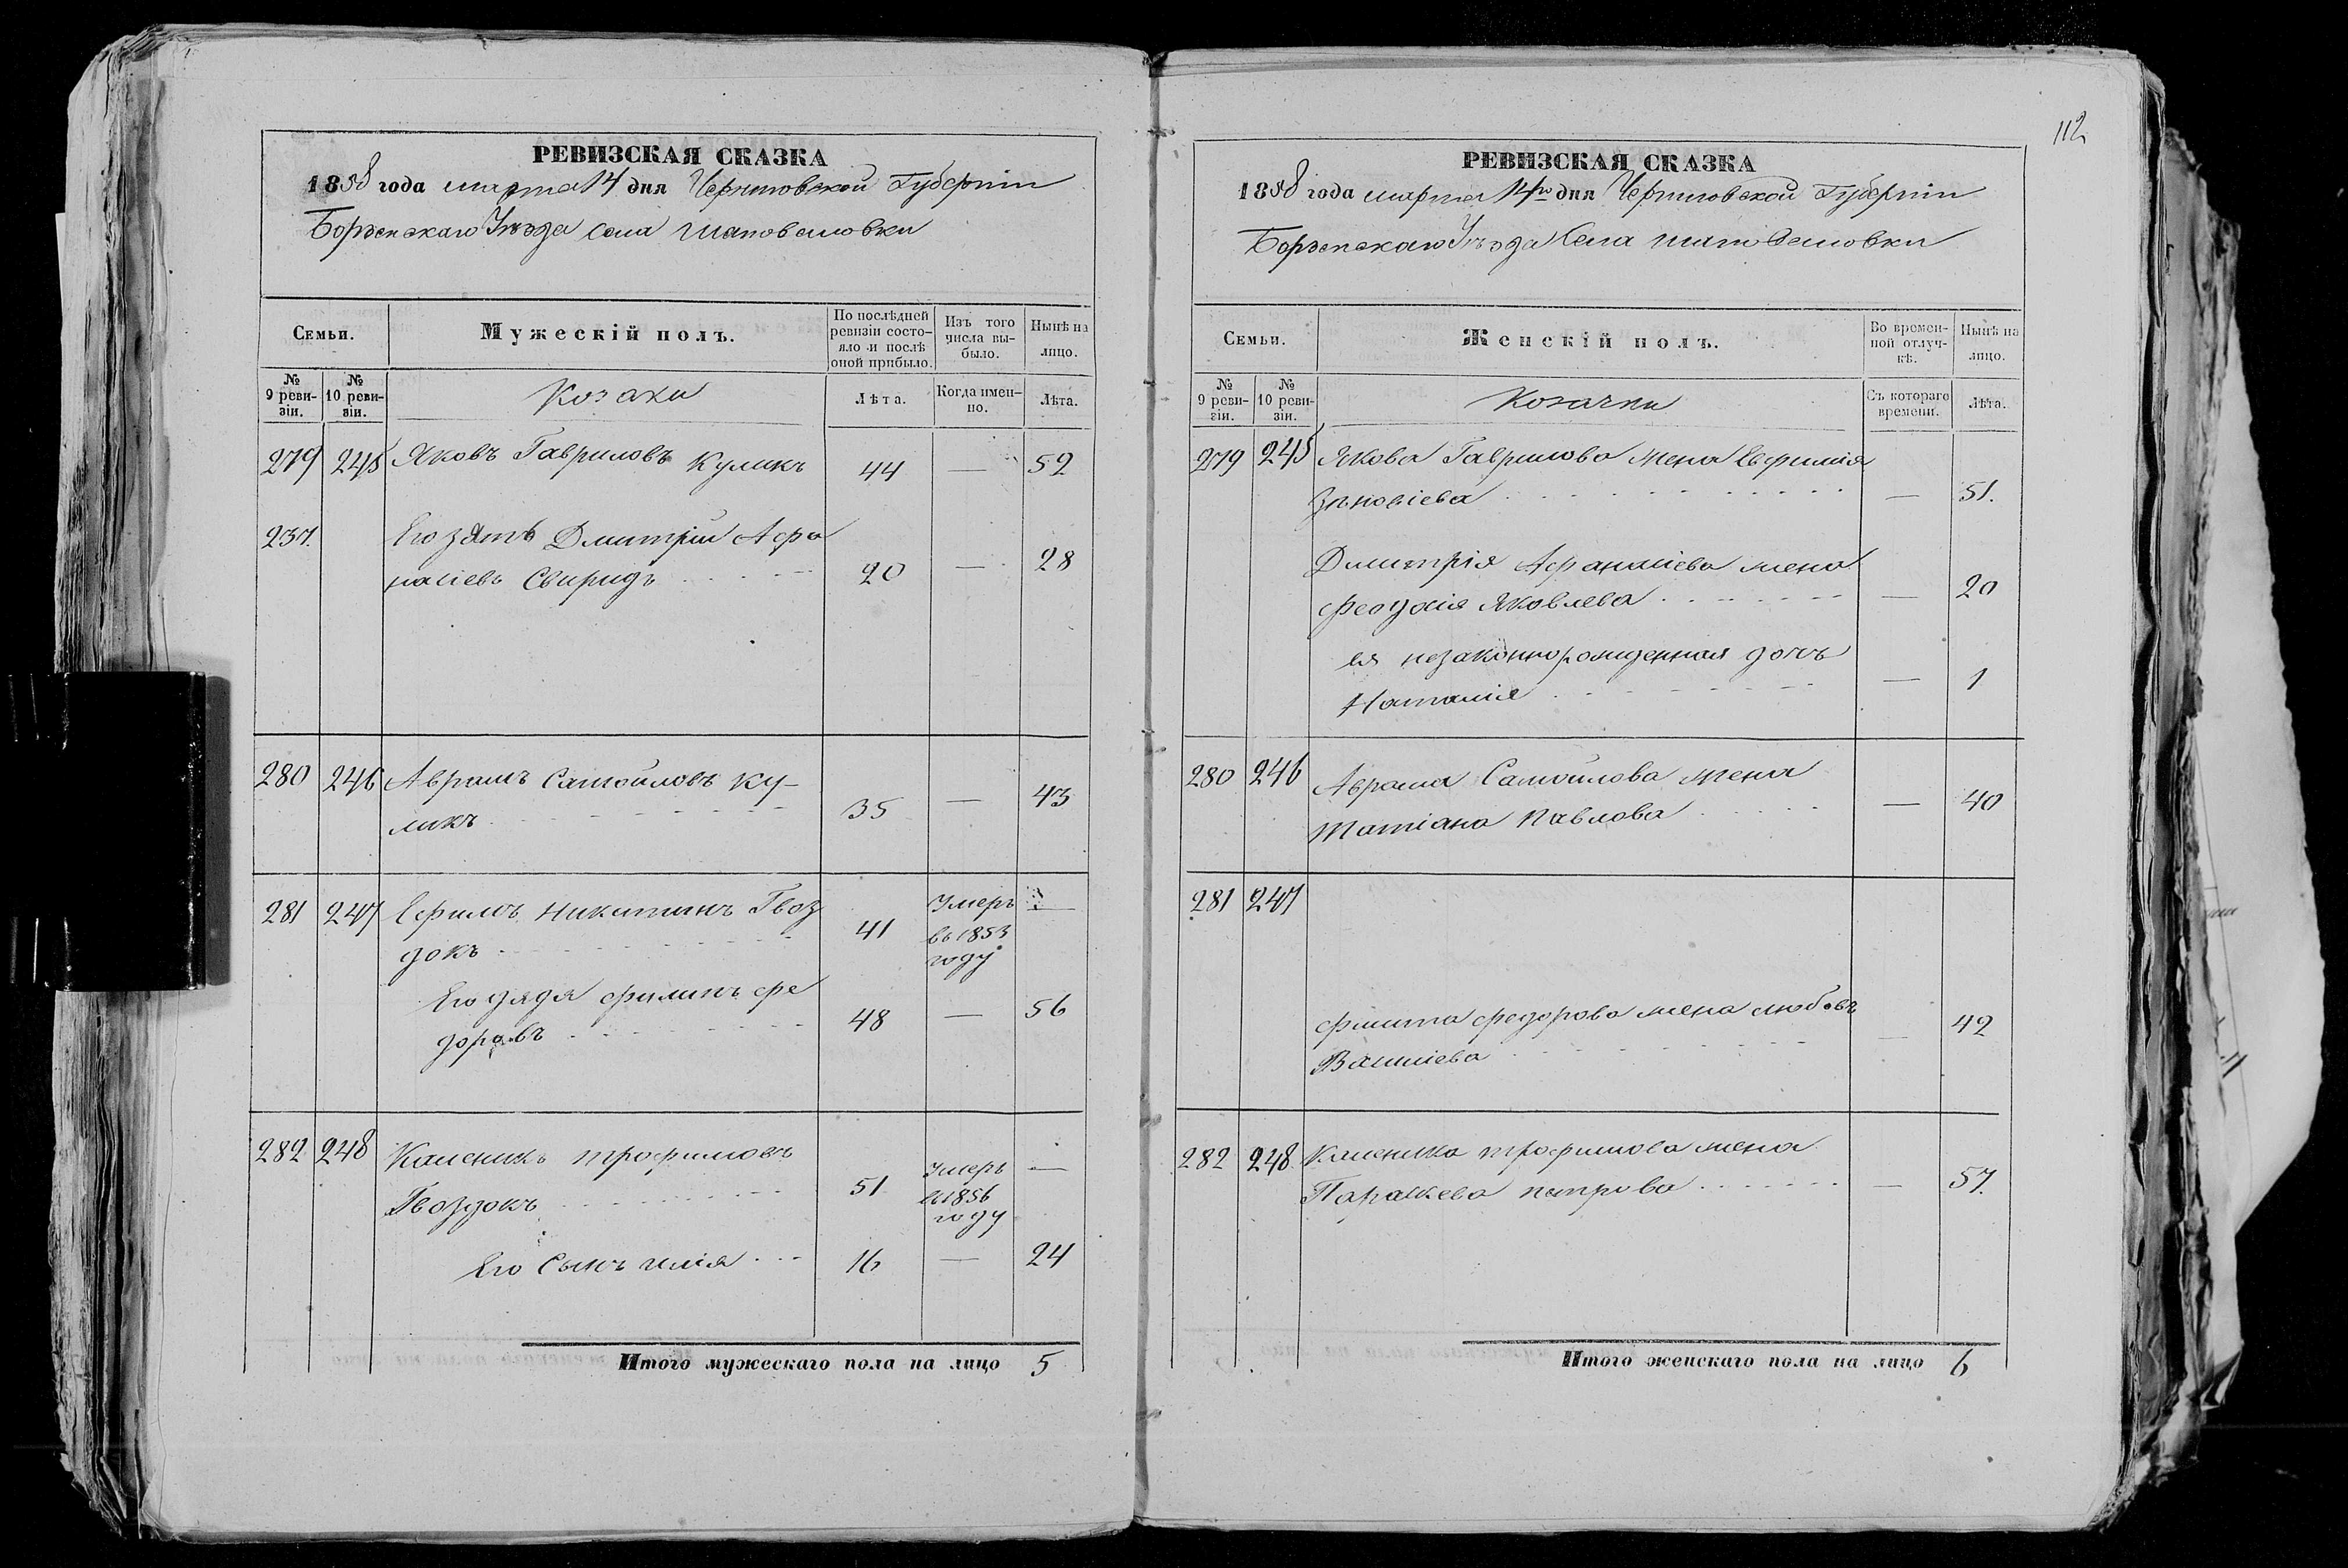 РЕВИЗСКАЯ СКАЗКА
1858 года марта 14 дня Черниговской Губерніи
Борзенскаго Уѣзда села Шаповаловки
Семьи.
Мужескій полъ.
По послѣдней ревизіи состояло и послѣ оной прибыло.
Изъ того числа выбыло.
Нынѣ на лицо.
№ 9 ревизіи.
№ 10 ревизіи.
Козаки
Лѣта.
Когда именно.
Лѣта.
279 245 Яковъ Гавриловъ Куликъ 44 — 52
237. Его зять Дмитрій Афа
насіевъ Свиридъ 20 — 28
280 246 Аврамъ Самойловъ Ку-
ликъ 35 — 43
281 247 Ефимъ Никитинъ Гвоз
докъ 41 Умеръ въ 1853 году —
Его дядя Филипъ Фе
доровъ 48 — 56
282 248 Каленикъ Трофимовъ
Гвоздокъ 51 Умеръ въ 1856 году —
Его Сынъ Илія 16 — 24
Итого мужескаго пола на лицо 5
112
РЕВИЗСКАЯ СКАЗКА
1858 года марта 14го дня Черниговской Губерніи
Борзенскаго Уѣзда Села Шаповаловки
Семьи.
Женскій полъ.
Во временной отлучкѣ.
Нынѣ на лицо.
№ 9 ревизіи.
№ 10 ревизіи.
Козачки
Съ котораго времени.
Лѣта.
279 245 Якова Гаврилова жена Евфимія
Зѣновіева — 51.
Дмитрія Афанасіева жена
Феодосія Яковлева — 20
ея незаконнорожденная дочь
Наталія — 1
280 246 Аврама Самойлова жена
Татіана Павлова — 40
281 247
Филипа Федорова жена Любовь
Василіева — 42
282 248 Каленика Трофимова жена
Параскева Петрова — 57.
Итого женскаго пола на лицо 6